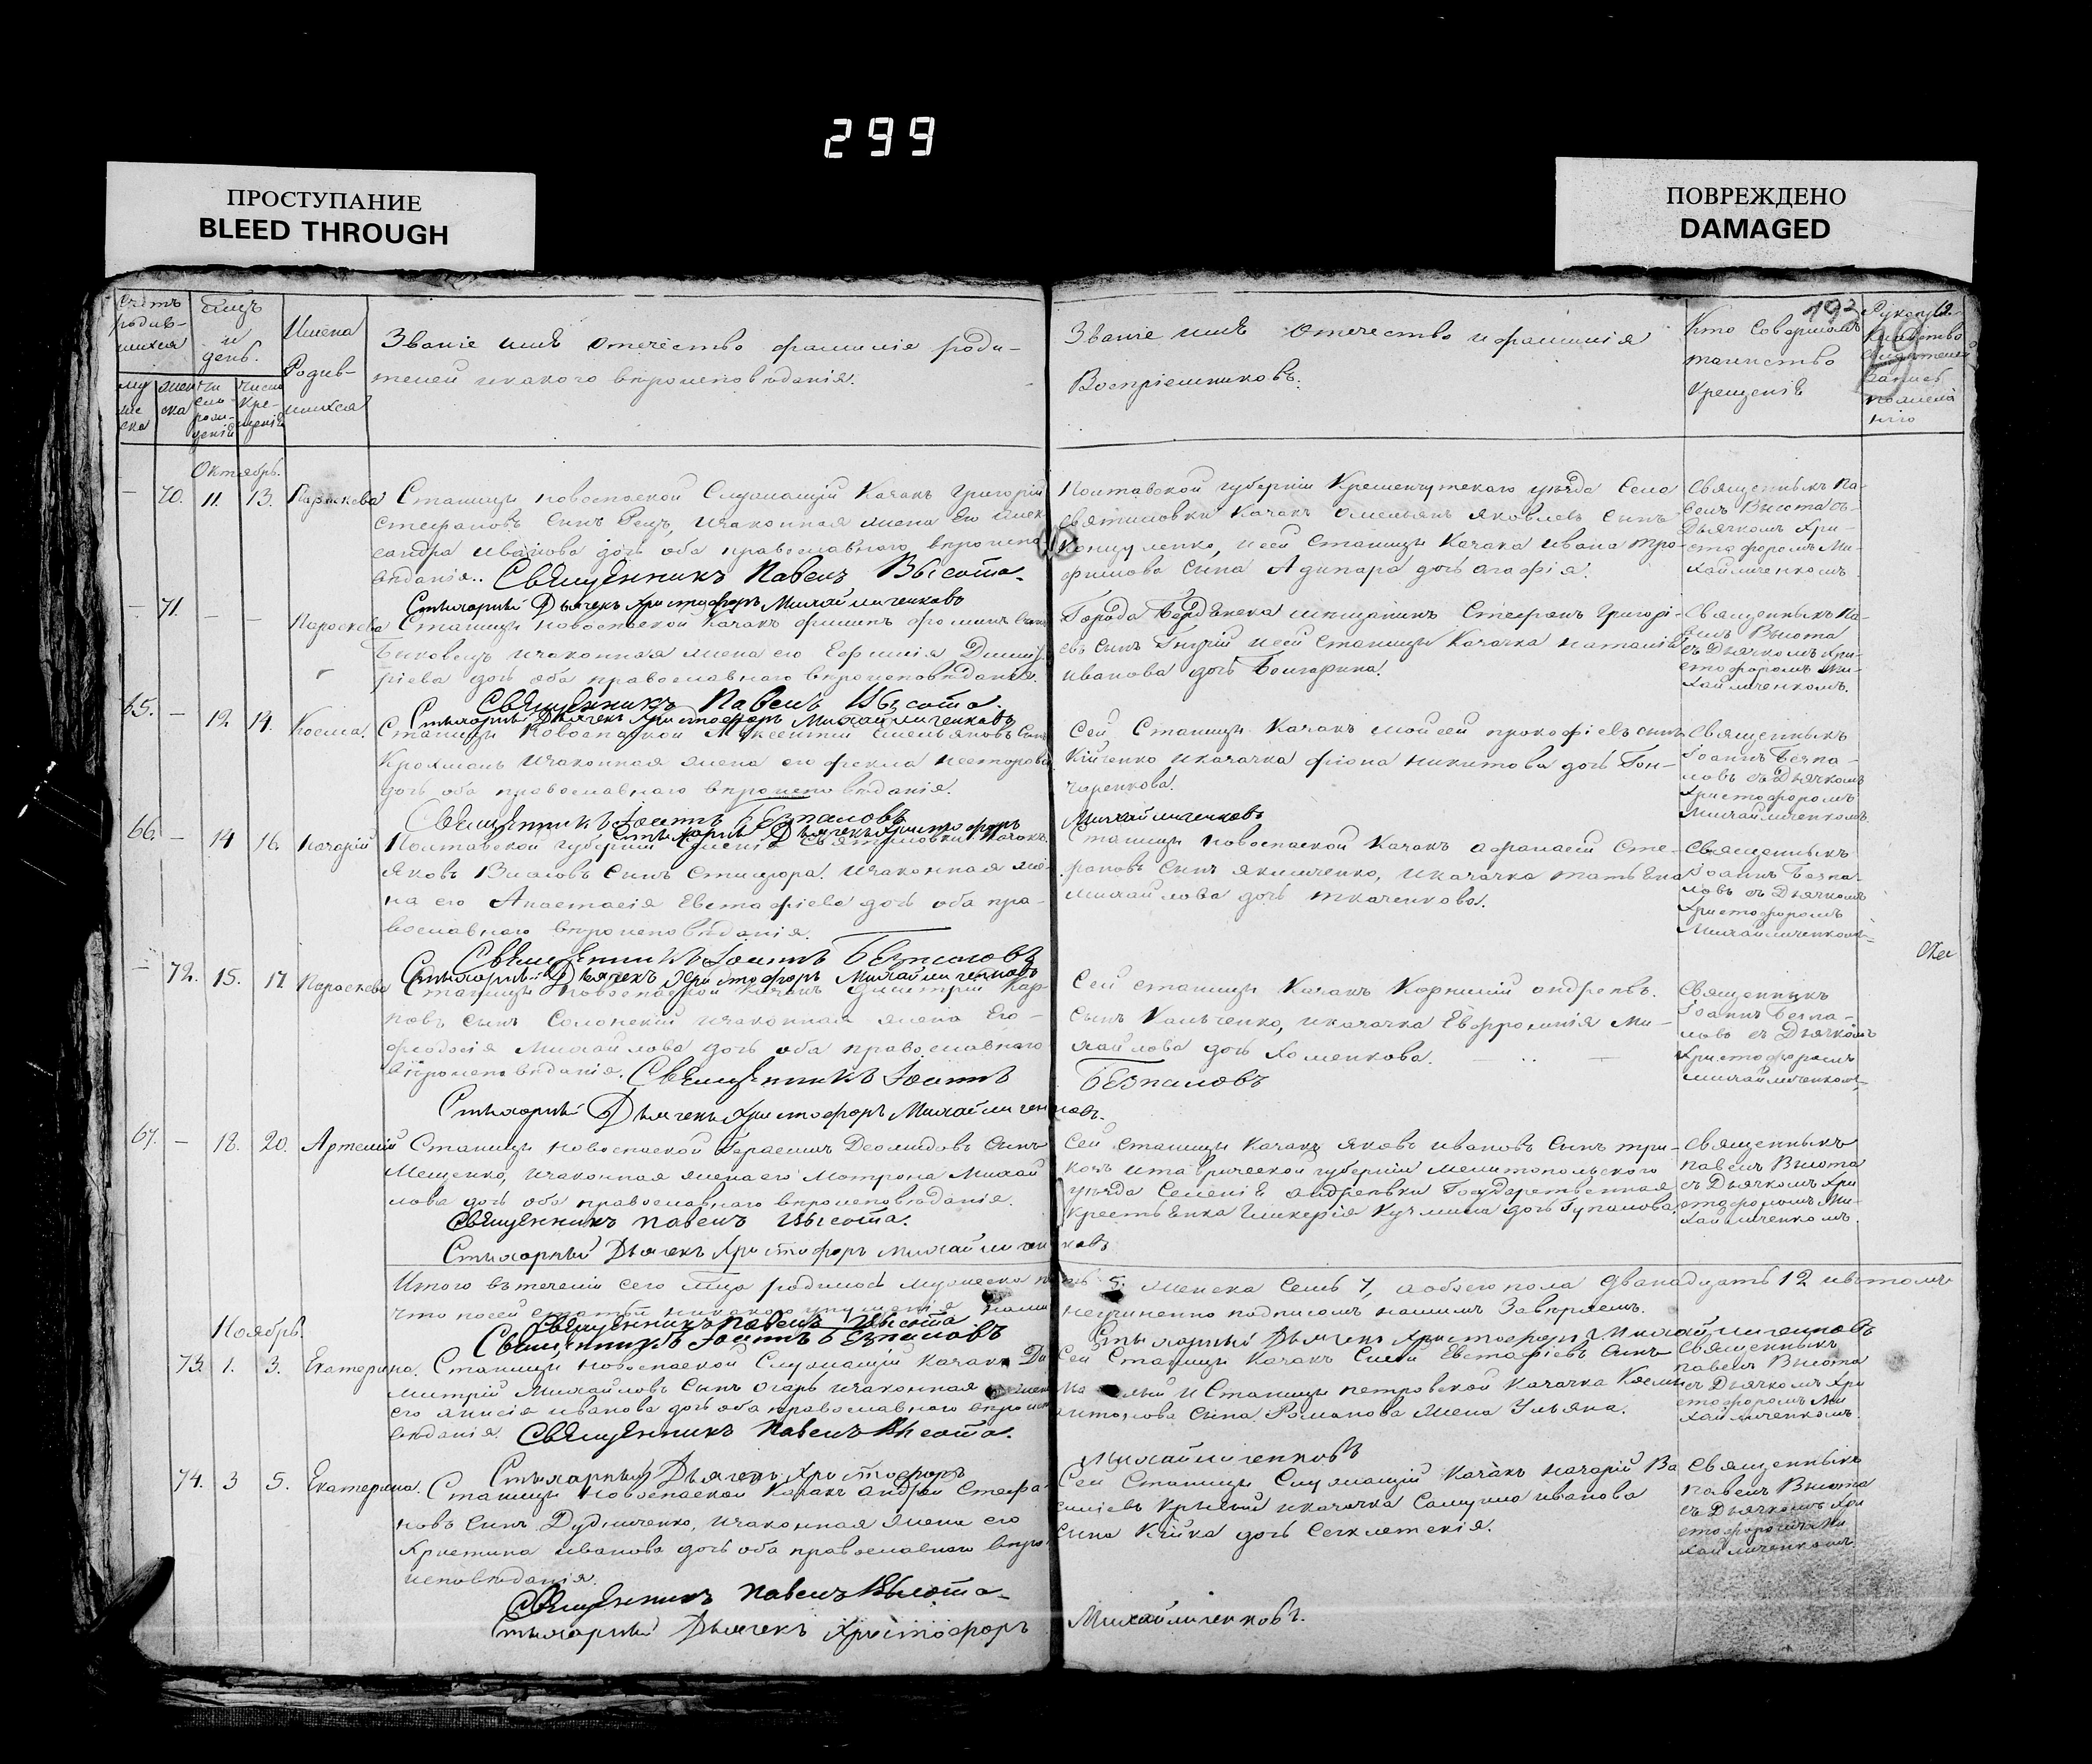 299
ПРОСТУПАНИЕ
BLEED THROUGH
ПОВРЕЖДЕНО
DAMAGED
193
Счетъ родив-шихся
муже ска
женска
мѣсяцъ и день.
число крещенія
Имена Родив-шихся
Званіе имя отечество фамиліе роди-
телей и какого вѣроисповѣданія.
Званіе имя отечество и фамилія
Воспріемниковъ.
Кто Совершалъ
таинство
Крещеніе
Октябрь.
— 70. 11. 13. Параскева
Станицы Новоспаской Служащій Казакъ Григорій
Стефановъ Сынъ Рецъ, и законная жена Его Алек
сандра Иванова дочь оба православнаго вѣроиспо
вѣданія.. Священникъ Павелъ Высота.
Стихарный Дьячекъ Христофоръ Михайличенковъ
Полтавской губерніи Кременчугскаго уѣзда Село
Святиловки Казакъ Омельянъ Яковлевъ Сынъ
и сей Станицы Казака Ивана Тро-
фимова Сына дочь Агафія.
Священникъ Па-
велъ Высота съ
Дьячкомъ Хри-
стофоромъ Ми-
хайличенкомъ
— 71. — — Параскева
Станицы Новоспаской Казакъ Филипъ Фоминъ Сынъ
Быковецъ и законная жена его Ефимія Дмит
ріева дочь оба православнаго вѣроисповѣданія.
Священникъ Павелъ Высота.
Стихарный Дьячекъ Христофоръ Михайличенковъ
Города Бердянска мѣщанинъ Стефанъ Григорі-
евъ Сынъ и сей Станицы Казачка Наталія
Иванова дочь Болгарина.
Священникъ Па-
велъ Высота
съ Дьячкомъ Хри-
стофоромъ Ми-
хайличенкомъ.
65. — 12 14. Косма.
Станицы Новоспаской Авксентій Емельяновъ Сынъ
и законная жена его Фекла Нестерова
дочь оба православнаго вѣроисповѣданія.
Священникъ Іоаннъ Безпаловъ
Стихарный Дьячекъ Христофоръ
Сей Станицы Казакъ Мойсей Прокофіевъ сынъ
Кійченко и казачка Фіона Никитова дочь Гон-
чаренкова.
Михайличенковъ
Священникъ
Іоаннъ Безпа-
ловъ съ Дьячкомъ
Христофоромъ
Михайличенкомъ
66. — 14 16. Назарій
Полтавской губерніи Святиловки Казакъ
Яковъ Власовъ Сынъ и законная же-
на его Анастасія Евстафіева дочь оба пра-
вославнаго вѣроисповѣданія.
Священникъ Іоаннъ Безпаловъ
Стихарный Дьячекъ Христофоръ Михайличенковъ
Станицы Новоспаской Казакъ Афанасій Сте-
фановъ Сынъ Якименко, и казачка Татьяна
Михайлова дочь Ткаченкова.
Священникъ
Іоаннъ Безпа-
ловъ съ Дьячкомъ
Христофоромъ
Михайличенкомъ
— 72. 15. 17. Параскева
Станицы Новоспаской Казакъ Дмитрій Кар-
повъ сынъ Солонскій и законная жена Его
Феодосія Михайлова дочь оба православнаго
вѣроисповѣданія. Священникъ Іоаннъ
Безпаловъ
Стихарный Дьячекъ Христофоръ Михайличенковъ.
Сей станицы Казакъ Корнилій Андреевъ.
Сынъ Кальченко, и казачка Евфросинія Ми-
хайлова дочь Хоменкова.
Священникъ
Іоаннъ Безпа-
ловъ съ Дьячкомъ
Христофоромъ
Михайличенкомъ
67. — 18. 20. Артемій
Станицы Новоспаской Герасимъ Деомидовъ Сынъ
Мещенко, и законная жена его Мотрона Михай
лова дочь оба православнаго вѣроисповѣданія.
Священникъ Павелъ Высота.
Стихарный Дьячекъ Христофоръ Михайличенковъ
Сей станицы Казакъ Яковъ Ивановъ Сынъ
и таврической губерніи мелитопольского
уѣзда Селенія Андреевки Государственная
крестьянка Гликерія Кузмина дочь
Священникъ
Павелъ Высота
съ Дьячкомъ Хри
стофоромъ Ми-
хайличенкомъ.
Итого въ теченіи сего мѣсяца родилось мужеска 5. женска Семь 7, а обоего пола Дванадцать 12 и въ томъ
что по сей статьи никакого упущенія нами неучиненно подписомъ нашимъ Завѣряемъ.
Священникъ Павелъ Высота
Священникъ Іоаннъ Безпаловъ
Стихарный Дьячекъ Христофоръ Михайличенковъ
Ноябрь.
73. 1. 3. Екатерина.
Станицы Новоспаской Служащій Казакъ Ди
митрій Михайловъ Сынъ и законная жена
его Анисія Иванова дочь оба православнаго вѣроиспо
вѣданія. Священникъ Павелъ Высота.
Стихарный Дьячекъ Христофоръ
Сей Станицы Казакъ Евстафіевъ Сынъ
и Станицы Петровской Казачка
Антонова Сына Романова жена Ульяна.
Михайличенковъ
Священникъ
Павелъ Высота
съ Дьячкомъ Хри
стофоромъ Ми
хайличенкомъ.
74. 3 5. Екатерина.
Станицы Новоспаской Казакъ Андрей Стефа-
новъ Сынъ Дудниченко, и законная жена его
Христина Иванова дочь оба православнаго вѣро
исповѣданія.
Священникъ Павелъ Высота
Стихарный Дьячекъ Христофоръ Михайличенковъ.
Сей Станицы Служащій Казакъ Назарій Ва
силіевъ и казачка Иванова
сына Кійка дочь
Священникъ
Павелъ Высота
съ Дьячкомъ Хри
стофоромъ Ми
хайличенкомъ